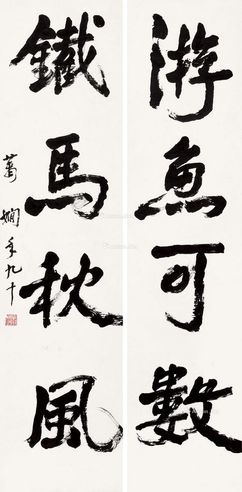 游魚可數
鐵馬秋風
蕭嫻年九十